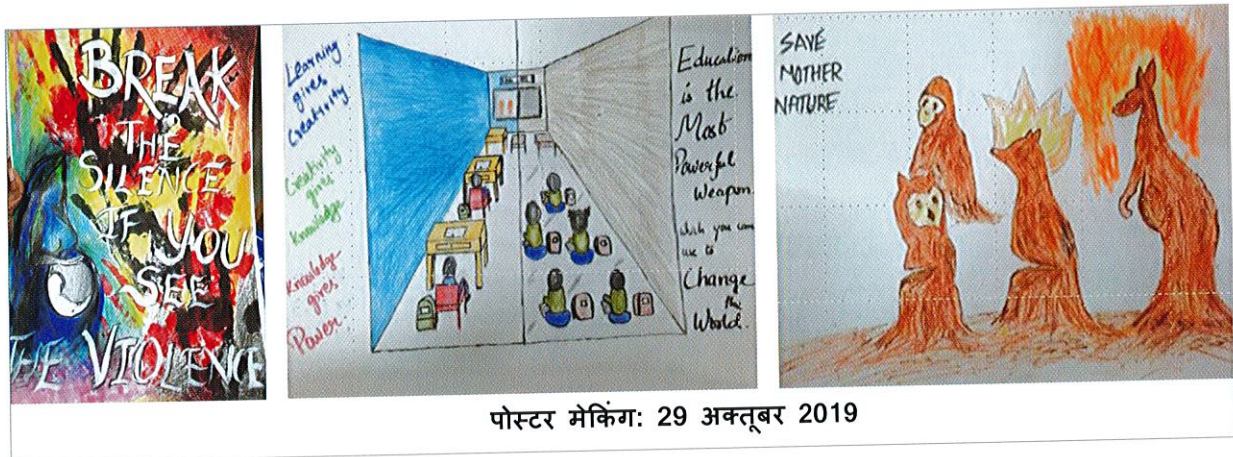 BREAK
THE
SILENCE
IF YOU
SEE
THE VIOLENCE
Learning
gives
Creativity
Creativity
gives
Knowledge
Knowledge
gives
Power.
Education
is the
Most
Powerful
Weapon.
which you can
use to
Change
the
World.
SAVE
MOTHER
NATURE
पोस्टर मेकिंग: 29 अक्तूबर 2019